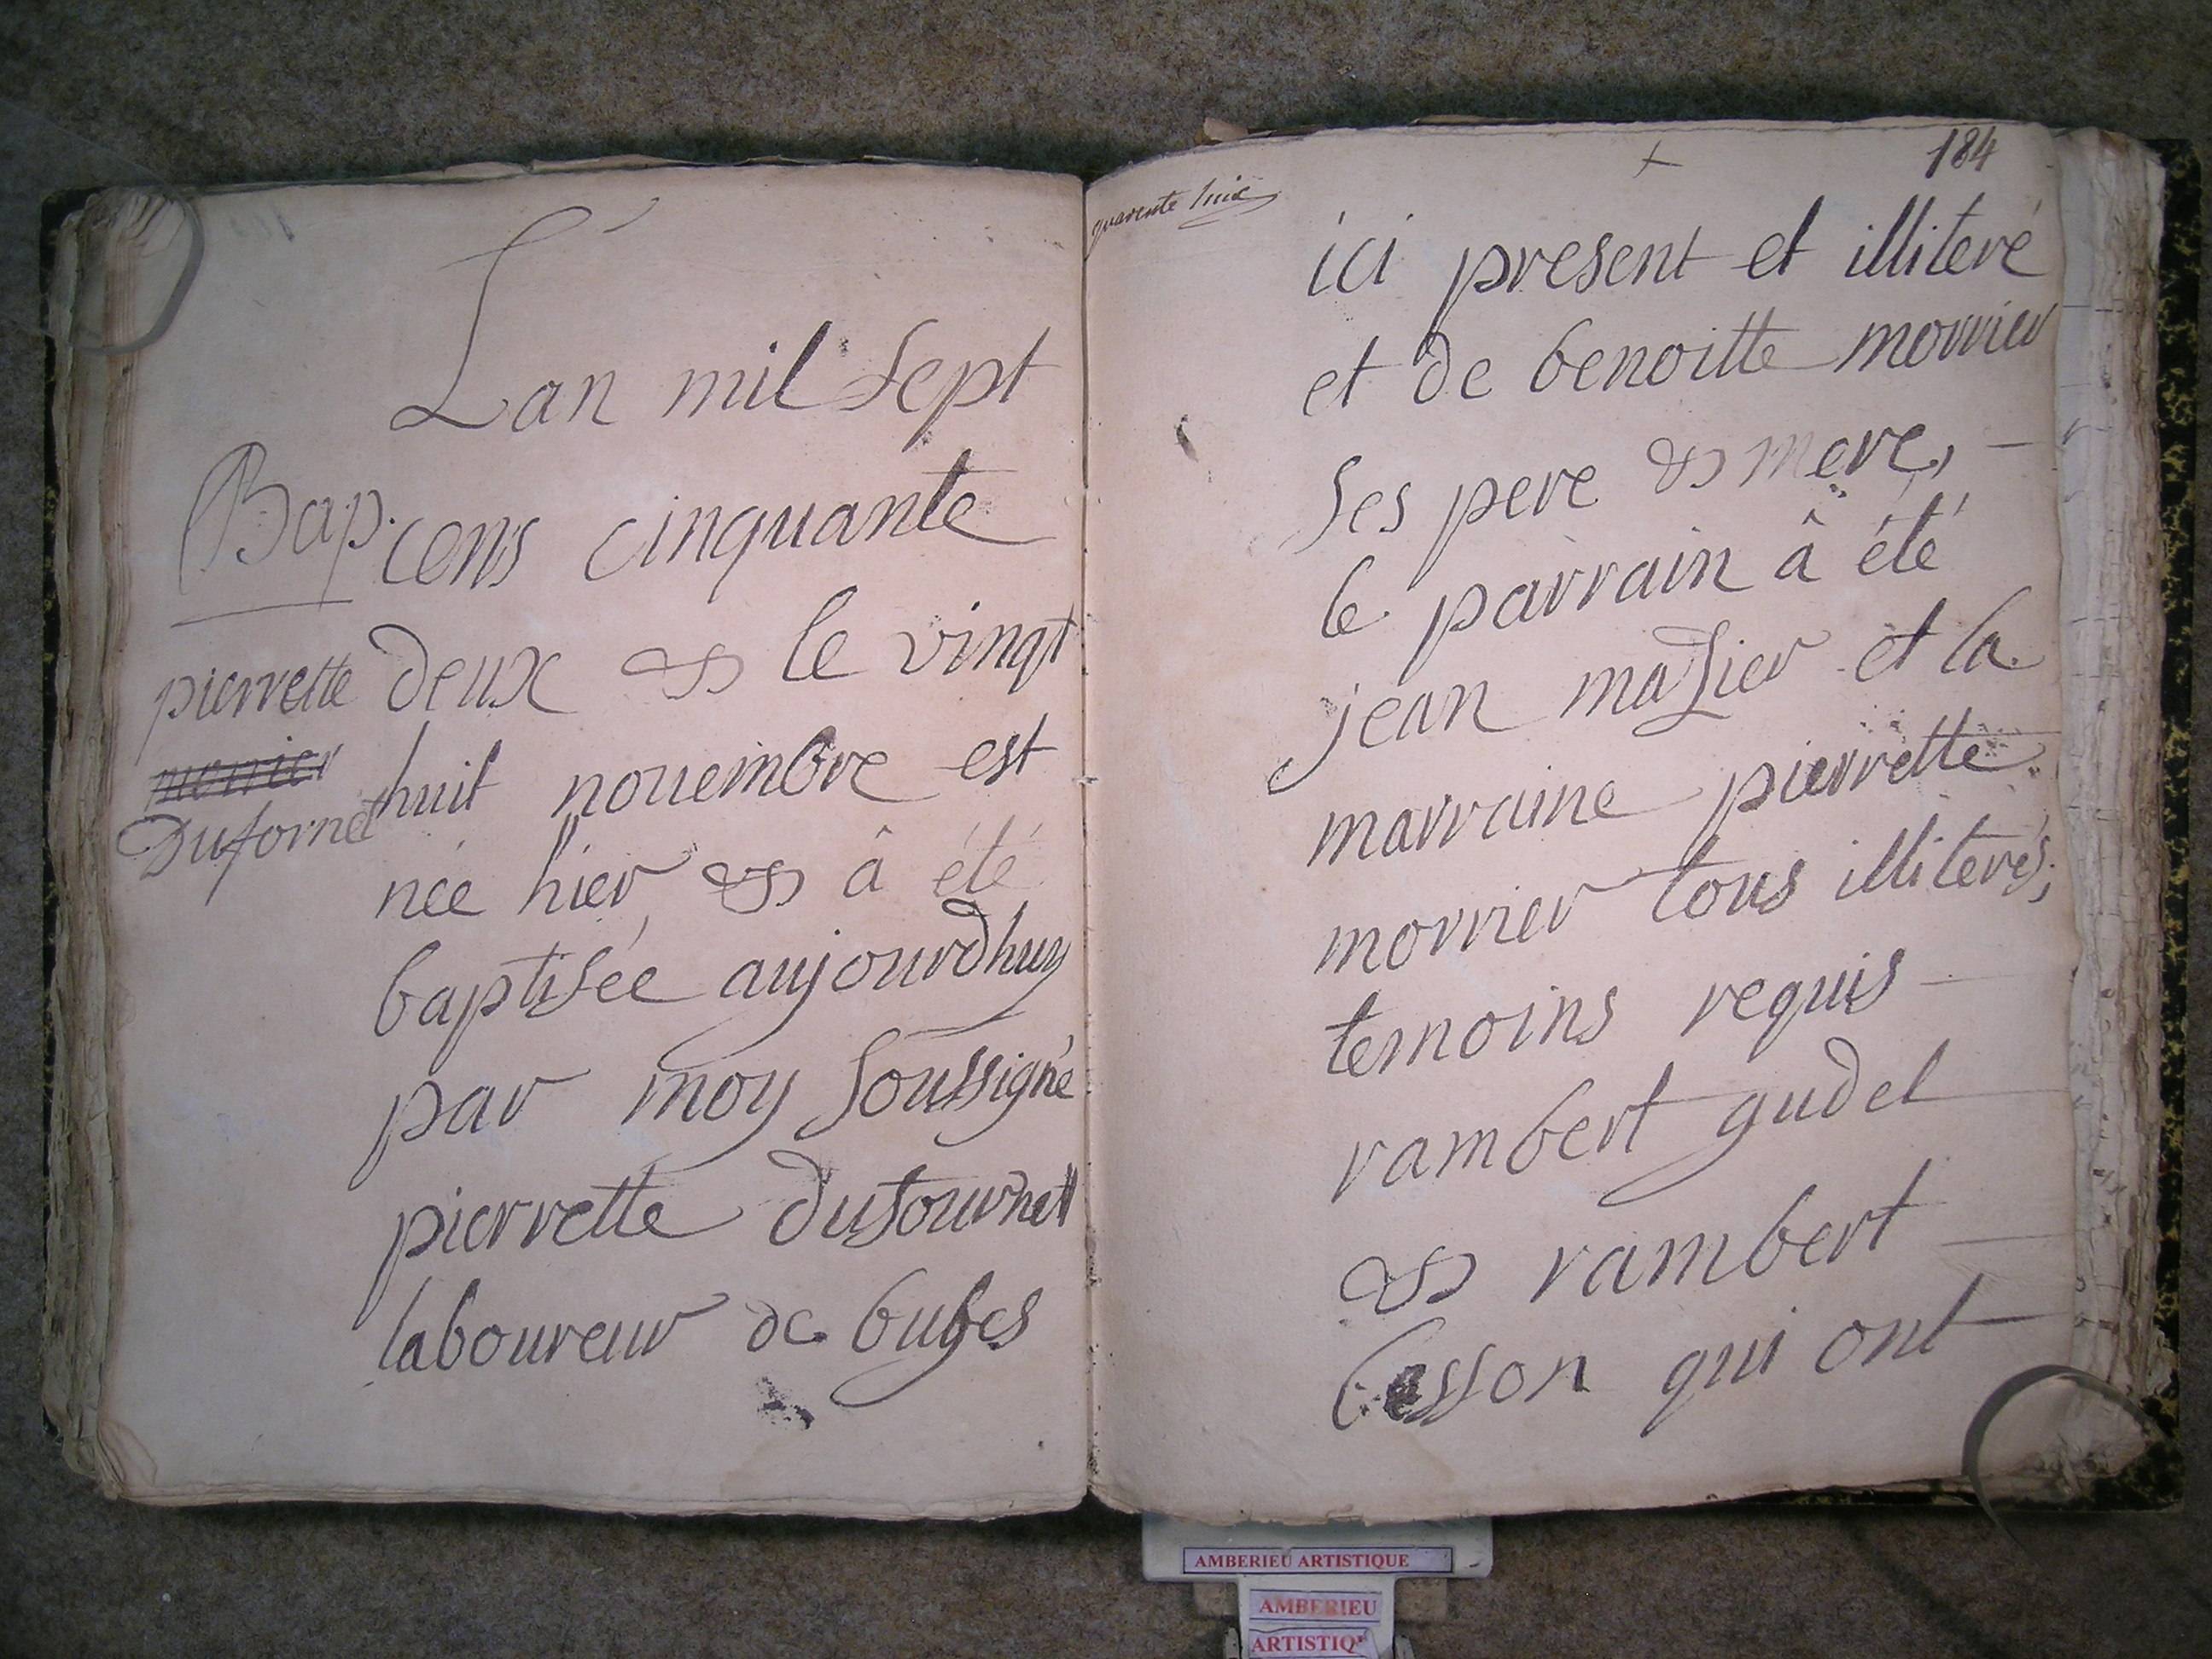 Lan mil sept
Bap. cens cinquante
pierrette deux & le vingt
morrier huit nouembre est
Dufornet
née hier, & â été
baptisée aujourdhuy
par moy soussigné
pierrette dufournet
laboureur de buges
quarente huit
184
ici present et illiteré
et de benoitte morrier
ses pere & mere,
le parrain â été
jean mazier et la
marraine pierrette
morrier tous illiterés;
temoins requis
rambert gudel
& rambert
besson qui ont
AMBERIEU ARTISTIQUE
AMBERIEU